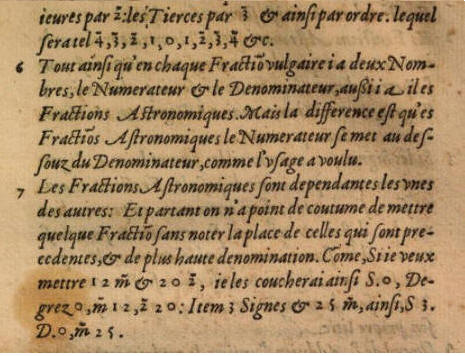 ieures par 2̃: les Tierces par 3̃ & ainsi par ordre. lequel
sera tel 4̃, 3̃, 2̃, 1, 0, 1, 2̃, 3̃, 4̃ &c.
6 Tout ainsi qu'en chaque Fractiõ vulgaire i a deux Nom-
bres, le Numerateur & le Denominateur, aussi i a il es
Fractions Astronomiques. Mais la difference est qu'es
Fractiõs Astronomiques le Numerateur se met au des-
souz du Denominateur, comme l'vsage a voulu.
7 Les Fractions Astronomiques sont dependantes les vnes
des autres: Et partant on n'a point de coutume de mettre
quelque Fractiõ sans noter la place de celles qui sont pre-
cedentes, & de plus haute denomination. Cõme, Si ie veux
mettre 12 m̃ & 20 2̃, ie les coucherai ainsi S. 0, De-
grez 0, m̃ 12, 2̃ 20: Item 3 Signes & 25 m̃, ainsi, S 3.
D. 0, m̃ 25.